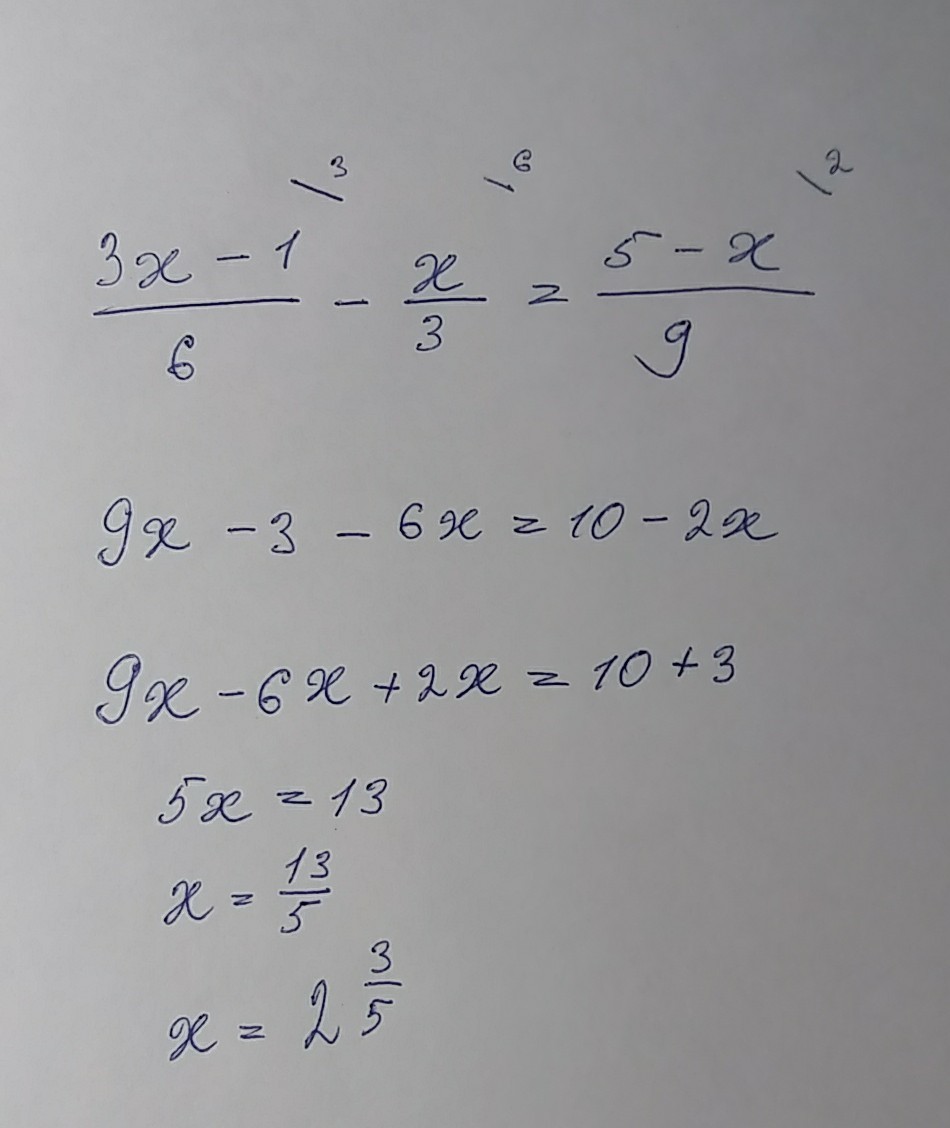 \3 \6 \2
3x - 1 / 6 - x / 3 = 5 - x / 9
9x - 3 - 6x = 10 - 2x
9x - 6x + 2x = 10 + 3
5x = 13
x = 13/5
x = 2 3/5